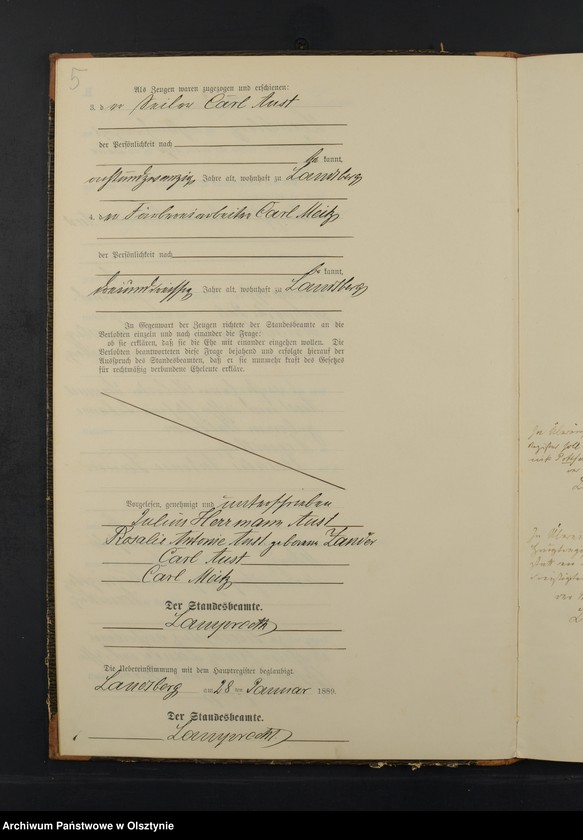 5
Als Zeugen waren zugezogen und erschienen:
3. der Seiler Carl Aust
der Persönlichkeit nach
be kannt,
Jahre alt, wohnhaft zu Landsberg
4. der Färbereiarbeiter Carl Meitz
der Persönlichkeit nach
be kannt,
dreiunddreißig Jahre alt, wohnhaft zu Landsberg
In Gegenwart der Zeugen richtete der Standesbeamte an die
Verlobten einzeln und nach einander die Frage:
ob sie erklären, daß sie die Ehe mit einander eingehen wollen. Die
Verlobten beantworteten diese Frage bejahend und erfolgte hierauf der
Ausspruch des Standesbeamten, daß er sie nunmehr kraft des Gesetzes
für rechtmäßig verbundene Eheleute erkläre.
Vorgelesen, genehmigt und unterschrieben
Julius Herrmann Aust
Rosalie Antonie Aust geborene Zander
Carl Aust
Carl Meitz
Der Standesbeamte.
Lamprecht
Die Uebereinstimmung mit dem Hauptregister beglaubigt.
Landsberg am 28 ten Januar 1889.
Der Standesbeamte.
Lamprecht
Archiwum Państwowe w Olsztynie